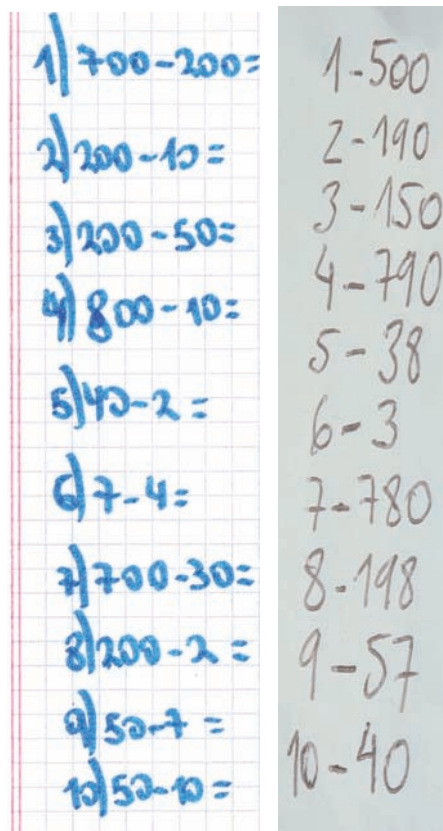 1) 700-200=
2) 200-10=
3) 200-50=
4) 800-10=
5) 40-2=
6) 7-4=
7) 700-30=
8) 200-2=
9) 50-7=
10) 50-10=
1-500
2-190
3-150
4-790
5-38
6-3
7-780
8-198
9-57
10-40